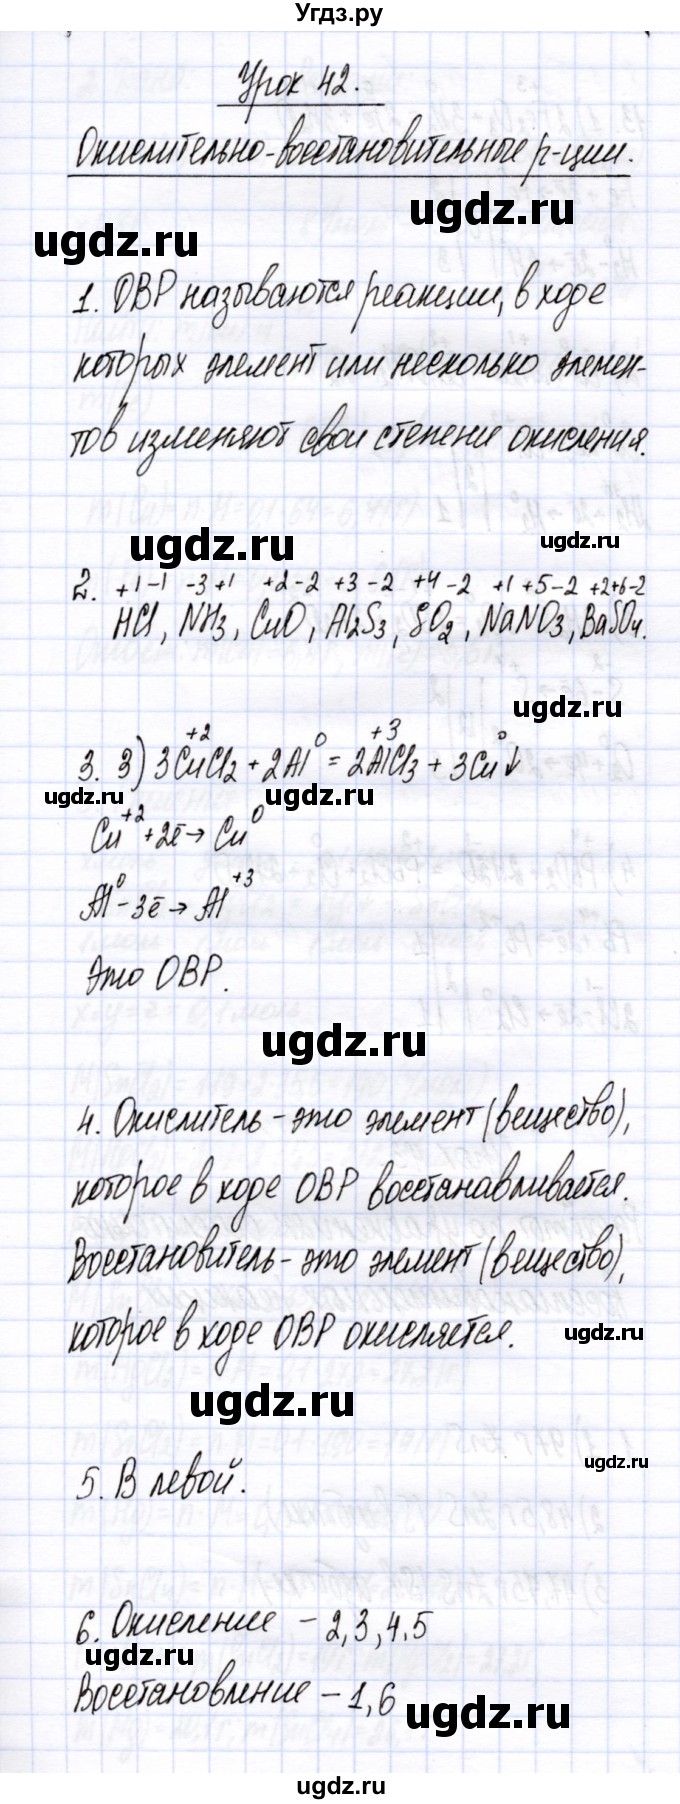 Угдз.ру
Урок 42.
Окислительно-восстановительные р-ции.
ugdz.ru ugdz.ru
1. ОВР называются реакции, в ходе
которых элемент или несколько элемен-
тов изменяют свои степени окисления.
ugdz.ru ugdz.ru
2. +1 -1 -3 +1 +2 -2 +3 -2 +4 -2 +1 +5 -2 +2 +6 -2
HCl, NH3, CuO, Al2S3, SO2, NaNO3, BaSO4.
ugdz.ru
+2 0 +3 0
3. 3) 3CuCl2 + 2Al = 2AlCl3 + 3Cu↓
ugdz.ru ugdz.ru
Cu+2 + 2ē → Cu0
Al0 - 3ē → Al+3
Это ОВР.
ugdz.ru
4. Окислитель - это элемент (вещество),
которое в ходе ОВР восстанавливается.
Восстановитель - это элемент (вещество),
которое в ходе ОВР окисляется.
ugdz.ru
ugdz.ru
ugdz.ru
5. В левой.
6. Окисление - 2,3,4,5
ugdz.ru
Восстановление - 1,6
ugdz.ru
ugdz.ru